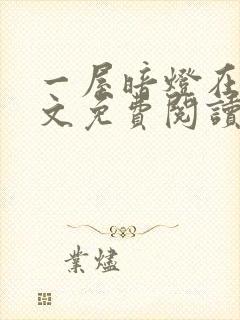 一屋暗燈在
文免費閱讀
業燼